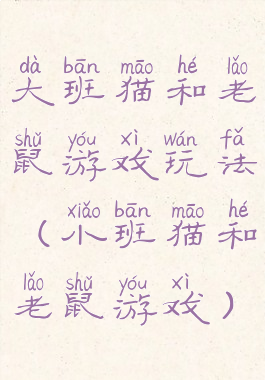 dà bān māo hé lǎo
大班猫和老
shǔ yóu xì wán fǎ
鼠游戏玩法
xiǎo bān māo hé
（小班猫和
lǎo shǔ yóu xì
老鼠游戏）